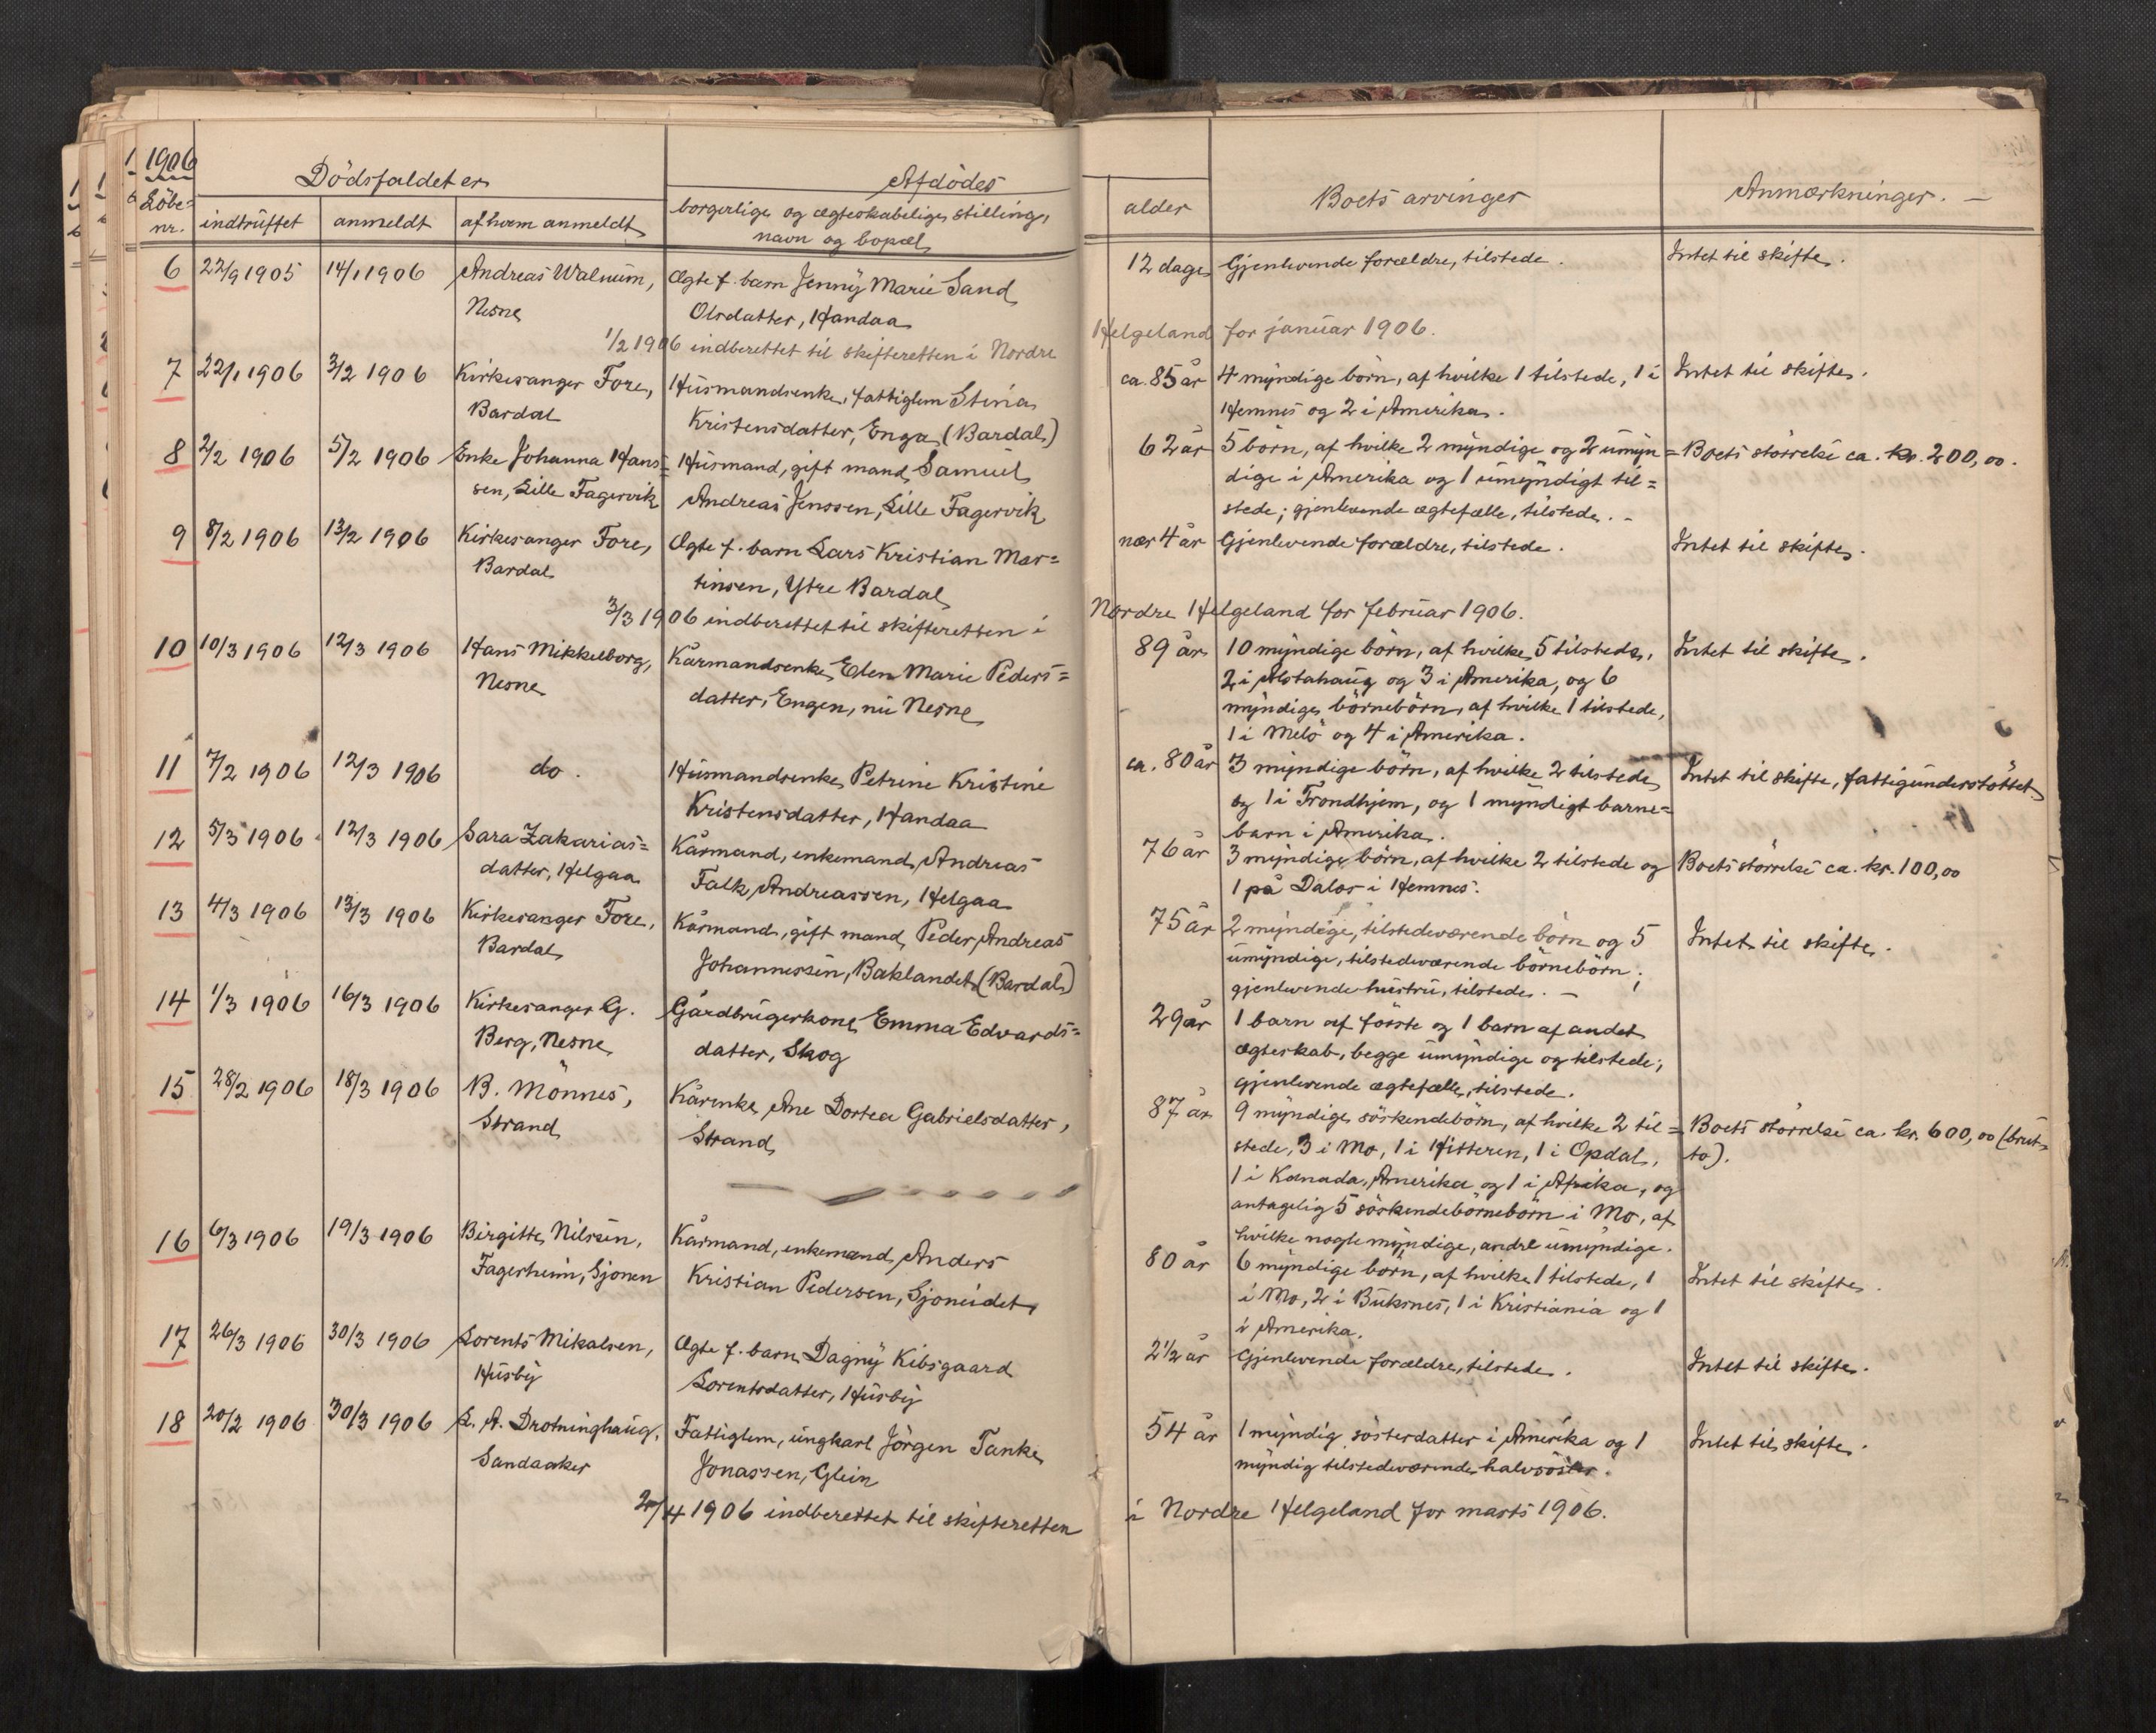 1906
Dödsfaldet er
Afdödes
Löbe=
nr.
indtruffet
anmeldt
af hvem anmeldt
borgerlige og ægteskabelige stilling,
navn og bopæl
alder
Boets arvinger
Anmærkninger. —
6 22/9 1905 14/1 1906 Andreas Walnum, Ægte f. barn Jenny Marie Sand 12 dage Gjenlevende forældre, tilstede. Intet til skifte.
Nesne Olsdatter, Handaa
1/2 1906 indberettet til skifteretten i Nordre Helgeland for januar 1906.
7 22/1 1906 3/2 1906 Kirkesanger Fore, Husmandsenke, fattiglem Stina ca. 85 år 4 myndige börn, af hvilke 1 tilstede, 1 i Intet til skifte.
Bardal Kristensdatter, Enga (Bardal) Hemnes og 2 i Amerika.
8 2/2 1906 5/2 1906 Enke Johanna Hans= Husmand, gift mand Samuel 62 år 5 börn, af hvilke 2 myndige og 2 umyn= Boets störrelse ca. kr. 200,00.
sen, Lille Fagervik Andreas Jenssen, Lille Fagervik dige i Amerika og 1 umyndigt til=
stede; gjenlevende ægtefælle, tilstede. -
9 8/2 1906 13/2 1906 Kirkesanger Fore, Ægte f. barn Lars Kristian Mar= nær 4 år Gjenlevende forældre, tilstede. Intet til skifte.
Bardal tinsen, Ytre Bardal
3/3 1906 indberettet til skifteretten i Nordre Helgeland for februar 1906.
10 10/3 1906 12/3 1906 Hans Mikkelborg, Kårmandsenke Elen Marie Peders= 89 år 10 myndige börn, af hvilke 5 tilstede, Intet til skifte.
Nesne datter, Engen, nu Nesne 2 i Alstahaug og 3 i Amerika, og 6
myndige börnebörn, af hvilke 1 tilstede,
1 i Melö og 4 i Amerika.
11 7/2 1906 12/3 1906 do. Husmandsenke Petrine Kristine ca. 80 år 3 myndige börn, af hvilke 2 tilstede Intet til skifte, fattigunderstöttet.
Kristensdatter, Handaa og 1 i Trondhjem, og 1 myndigt barne=
barn i Amerika.
12 5/3 1906 12/3 1906 Sara Zakarias= Kårmand, enkemand Andreas 76 år 3 myndige börn, af hvilke 2 tilstede og Boets störrelse ca. kr. 100,00
datter, Helgaa Falk Andreassen, Helgaa 1 på Dalos i Hemnes.
13 4/3 1906 13/3 1906 Kirkesanger Fore, Kårmand, gift mand, Peder Andreas 75 år 2 myndige, tilstedeværende börn og 5 Intet til skifte.
Bardal Johannessen, Baklandet (Bardal) umyndige, tilstedeværende börnebörn;
gjenlevende hustru, tilstede. -
14 1/3 1906 16/3 1906 Kirkesanger G. Gårdbrugerkone Emma Edvards= 29 år 1 barn af förste og 1 barn af andet
Berg, Nesne datter, Skog ægteskab, begge umyndige og tilstede;
gjenlevende ægtefælle, tilstede.
15 28/2 1906 18/3 1906 B. Mönnes, Kårenke Ane Dortea Gabrielsdatter, 87 år 9 myndige söskendebörn, af hvilke 2 til= Boets störrelse ca. kr. 600,00 (brut
Strand Strand stede, 3 i Mo, 1 i Hitteren, 1 i Opdal, to).
1 i Kanada, Amerika og 1 i Afrika, og
antagelig 5 söskendebörnebörn i Mo, af
hvilke nogle myndige, andre umyndige.
16 6/3 1906 19/3 1906 Birgitte Nilsen, Kårmand, enkemand Anders 80 år 6 myndige börn, af hvilke 1 tilstede, 1 Intet til skifte.
Fagerheim, Sjonen Kristian Pedersen, Sjoneidet i Mo, 2 i Buksnes, 1 i Kristiania og 1
i Amerika.
17 26/3 1906 30/3 1906 Lorents Mikalsen, Ægte f. barn Dagny Kibsgaard 2 1/2 år Gjenlevende forældre, tilstede. Intet til skifte.
Husby Lorentsdatter, Husby
18 20/2 1906 30/3 1906 L. A. Drotninghaug, Fattiglem, ungkarl Jörgen Tanke 54 år 1 myndig sösterdatter i Amerika og 1 Intet til skifte.
Sandaaker Jonassen, Glein myndig tilstedeværende halvsöster.
2/4 1906 indberettet til skifteretten i Nordre Helgeland for marts 1906.